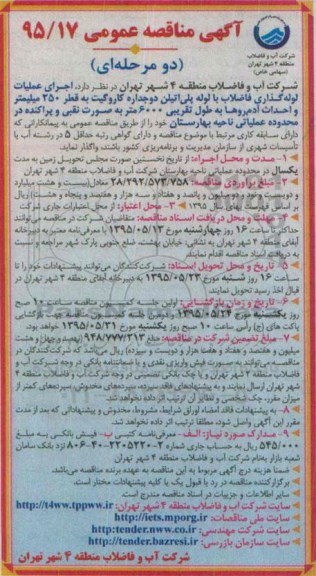 آگهی مناقصه عمومی ۹۵/۱۷
(دو مرحله‌ای)
شرکت آب و فاضلاب
منطقه ۴ شهر تهران
(سهامی خاص)
شرکت آب و فاضلاب منطقه ۴ شهر تهران در نظر دارد، اجرای عملیات
لوله‌گذاری فاضلاب با لوله پلی‌اتیلن دوجداره کاروگیت به قطر ۲۵۰ میلیمتر
و احداث آدم‌روها به طول تقریبی ۶۰۰۰متر به صورت نقبی و پراکنده در
محدوده عملیاتی ناحیه بهارستان خود را از طریق مناقصه عمومی به پیمانکارانی که
دارای سابقه کاری مرتبط با موضوع مناقصه و دارای گواهی رتبه حداقل ۵ در رشته آب یا
تأسیسات شهری از سازمان مدیریت و برنامه‌ریزی کشور باشند، واگذار نماید.
۱- مدت و محل اجرا: از تاریخ نخستین صورت مجلس تحویل زمین به مدت
یکسال در محدوده عملیاتی ناحیه بهارستان شرکت آب و فاضلاب منطقه ۴ شهر تهران
۲- مبلغ برآوردی مناقصه: ۲۸/۲۹۲/۵۷۳/۷۵۸ معادل(بیست و هشت میلیارد
و دویست و نود و دو میلیون و پانصد و هفتاد و سه هزار و هفتصد و پنجاه و هشت) ریال
بر اساس فهرست بهای سال ۱۳۹۵ ۳- محل اعتبار: از محل اعتبارات جاری شرکت
۴- مهلت و محل دریافت اسناد مناقصه: متقاضیان شرکت در مناقصه می‌توانند
حداکثر تا ساعت ۱۶ روز چهارشنبه مورخ ۱۳۹۵/۰۵/۱۳ با معرفی‌نامه معتبر به دبیرخانه
آبفای منطقه ۴ شهر تهران به نشانی: خیابان بهشت، ضلع جنوبی پارک شهر مراجعه و نسبت
به دریافت اسناد مناقصه اقدام نمایند.
۵- تاریخ و محل تحویل اسناد: شرکت‌کنندگان می‌توانند پیشنهادات خود را تا
ساعت ۱۶ روز شنبه مورخ ۱۳۹۵/۰۵/۲۳ به دبیرخانه آبفای منطقه ۴ شهر تهران در
قبال اخذ رسید تحویل نمایند.
۶- تاریخ و زمان بازگشایی: اولین جلسه کمیسیون مناقصه ساعت ۱۰ صبح
روز یکشنبه مورخ ۱۳۹۵/۰۵/۲۴
پاکت های (ج) رأس ساعت ۱۰ صبح روز یکشنبه مورخ ۱۳۹۵/۰۵/۳۱ خواهد بود.
۷- مبلغ تضمین شرکت در مناقصه: مبلغ ۹۴۸/۷۷۷/۲۱۳ (نهصد و چهل و هشت
میلیون و هفتصد و هفتاد و هفت هزار و دویست و سیزده) ریال می‌باشد که شرکت‌کنندگان در
مناقصه می‌توانند به صورت فیش واریزی نقدی و یا ضمانتنامه بانکی در وجه شرکت آب و
فاضلاب منطقه ۴ شهر تهران و یا چک بانکی تضمینی در وجه شرکت آب و فاضلاب منطقه ۴
شهر تهران ارسال نمایند و به پیشنهادهای فاقد سپرده، سپرده‌های مخدوش، سپرده‌های کمتر از
میزان مقرر، چک شخصی و نظایر آن ترتیب اثر داده نخواهد شد.
۸- به پیشنهادات فاقد امضاء اوراق شرایط، مشروط، مخدوش و پیشنهاداتی که بعد از مدت
مقرر این آگهی واصل شود، مطلقا ترتیب اثر داده نخواهد شد.
۹- مدارک مورد نیاز: الف- معرفی‌نامه کتبی ب- فیش بانکی به مبلغ
۵۴۵/۰۰۰ ریال به حساب جاری شماره
شعبه بازار بنام شرکت آب و فاضلاب منطقه ۴ شهر تهران
ضمنا هزینه درج آگهی مربوط به این مناقصه به عهده برنده مناقصه می‌باشد.
برگزارکننده مناقصه در رد یا قبول یک یا کلیه پیشنهادات مختار است.
سایر اطلاعات و جزییات در اسناد مناقصه مندرج است.
سایت شرکت آب و فاضلاب منطقه ۴ تهران: http://t4ww.tppww.ir
سایت ملی مناقصات: http://iets.mporg.ir
سایت شرکت مهندسی: http://tender.nww.co.ir
سایت سازمان بازرسی: http://tender.bazresi.ir
شرکت آب و فاضلاب منطقه ۴ شهر تهران